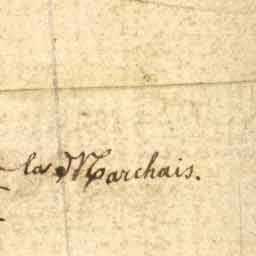 la Marchais.